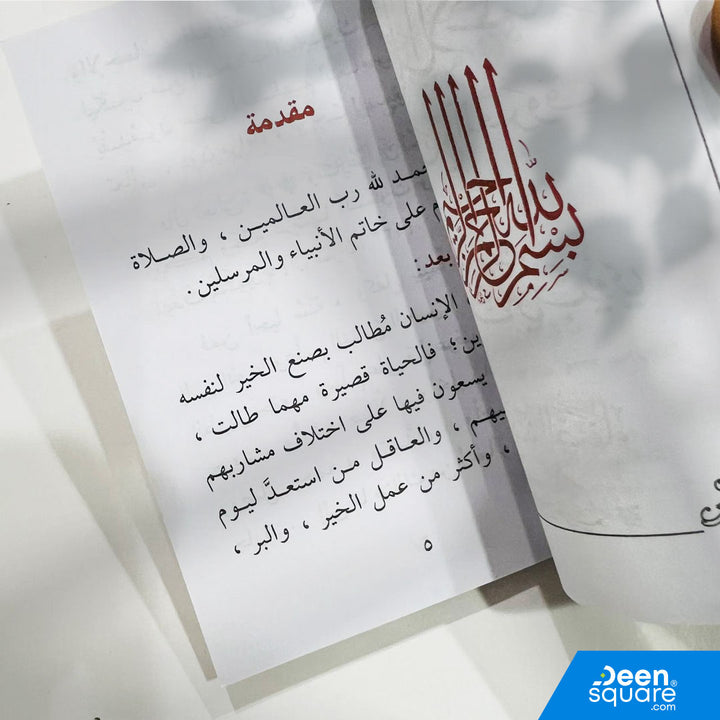 مقدمة
لله رب العالمين ، والصلاة
على خاتم الأنبياء والمرسلين .
بعد :
الإنسان مُطالب بصنع الخير لنفسه
فالحياة قصيرة مهما طالت ،
يسعون فيها على اختلاف مشاربهم
، والعاقل من استعدَّ ليوم
، وأكثر من عمل الخير ، والبر ،
٥
بسم الله الرحمن الرحيم
Deen
square®
.com